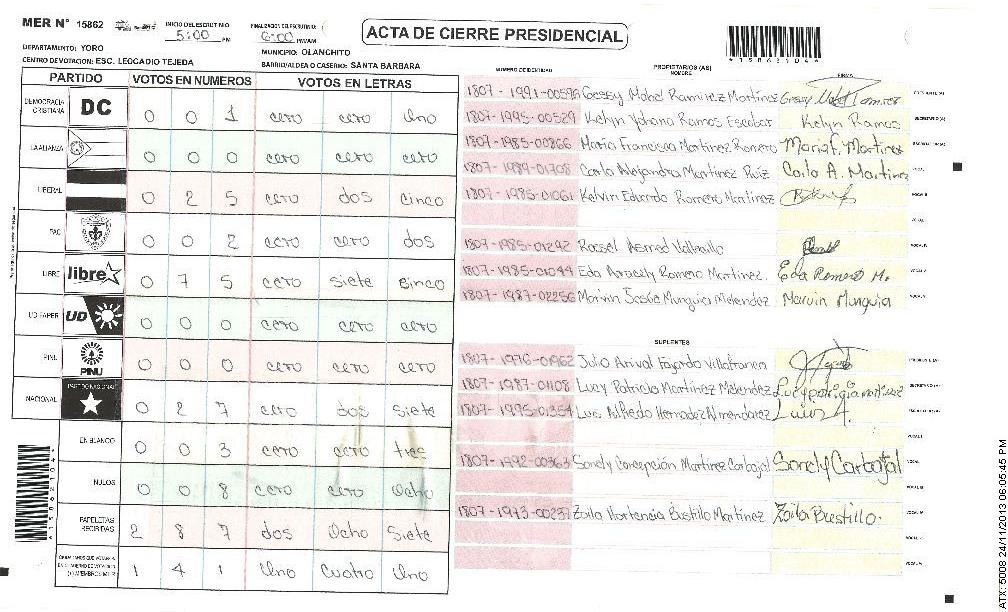 MER N° 15862
INICIO DEL ESCRUTINIO
5:00 PM
FINALIZACION DEL ESCRUTINIO:
6:00 PM/AM
ACTA DE CIERRE PRESIDENCIAL
*1586210 4*
DEPARTAMENTO: YORO
MUNICIPIO: OLANCHITO
CENTRO DE VOTACION: ESC. LEOCADIO TEJEDA
BARRIO/ALDEA O CASERIO: SANTA BARBARA
PARTIDO VOTOS EN NUMEROS VOTOS EN LETRAS
DEMOCRACIA CRISTIANA DC 0 0 1 cero cero Uno
LA ALIANZA 0 0 0 cero cero cero
LIBERAL 0 2 5 cero dos cinco
PAC 0 0 2 cero cero dos
LIBRE libre 0 7 5 cero siete cinco
UD FAPER UD 0 0 0 cero cero cero
PINU PINU 0 0 0 cero cero cero
NACIONAL PARTIDO NACIONAL 0 2 7 cero dos siete
EN BLANCO 0 0 3 cero cero tres
NULOS 0 0 8 cero cero Ocho
PAPELETAS RECIBIDAS 2 8 7 dos Ocho Siete
1 4 1 Uno Cuatro Uno
NUMERO DE IDENTIDAD
PROPIETARIOS (AS)
NOMBRE
FIRMA
1807-1991-00596 Gessy Mabel Ramirez Martínez
1807-1995-00529 Kelyn Yohana Ramos Escobar Kelyn Ramos
1807-1985-00866 Maria Francisca Martinez Romero Maria f. Martinez
1807-1989-01708 Carla Alejandra Martinez Ruiz Carla A. Martinez
1807-1985-01061 Kelvin Eduardo Romero Martinez
1807-1985-01292 Rossel Asmed
1807-1985-01044 Eda Aracely Romero Martinez. Eda Romero M.
1807-1987-02256 Marvin Jesús Munguia Melendez Marvin Munguia
SUPLENTES
1807-1976-01962 Julio Anival Fajardo Villafranca
1807-1987-01108 Lucy Patricia Martinez Melendez
1807-1995-01354 Luis Alfredo Hernadez Almendarez Luis A.
1807-1992-00363 Sondy Concepción Martinez Carbajal Sondy Carbajal
1807-1973-00237 Zoila Hortencia Bustillo Martinez Zoila Bustillo.
ATX: 5008 24/11/2013 06:05:45 PM